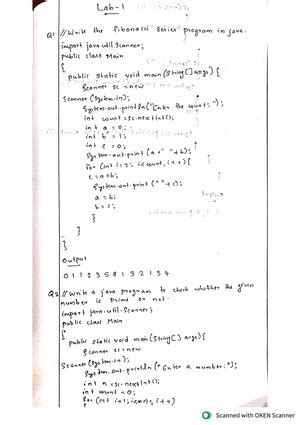 Lab-1
Q1 // Write the Fibonacci Series program in java.
import java.util.Scanner;
public class Main
{
public static void main(String[] args) {
Scanner sc = new
Scanner(System.in);
System.out.println("Enter the count: ");
int count = sc.nextInt();
int a = 0;
int b = 1;
int c = 0;
System.out.print(a+" "+b);
for (int i=2; i<count; i++) {
c = a+b;
System.out.print(" "+c);
a = b;
b = c;
}
}
}
Output
0 1 1 2 3 5 8 1 3 2 1 3 4
Q2 // Write a java program to check whether the given
number is Prime or not.
import java.util.Scanner;
public class Main
{
public static void main(String[] args) {
Scanner sc = new
Scanner(System.in);
System.out.println("Enter a number:");
int n = sc.nextInt();
int count = 0;
for (int i=1; i<=n; i++)
Scanned with OKEN Scanner